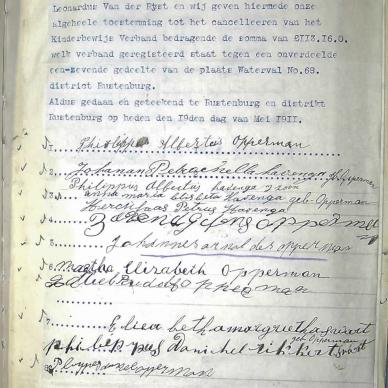 Leonardus Van der Byst en wij geven hiermede onze
algeheele toestemming tot het cancelleeren van het
Kinderbewijs Verband bedragende de somma van £112.16.0.
welk verband geregisteerd staat tegen een onverdeelde
een-zevende gedeelte van de plaats Waterval No.69.
district Rustenburg.
Aldus gedaan en geteekend te Rustenburg en distrikt
Rustenburg op heden den 19den dag van Mei 1911.
1. Philippus Albertus Opperman
2. Johanna Petronella Havenga geb Opperman
Philippus Albertus Havenga
3. anna maria Elisabeta Havenga geb Opperman
Petrus Havenga
4. Opperman
5. Johannes arnoldus opperman
6. Martha Elizabeth Opperman
opperman
7. Eliesabetha margrietha swart
geb Opperman
philippus Daniehel swart
8. opperman